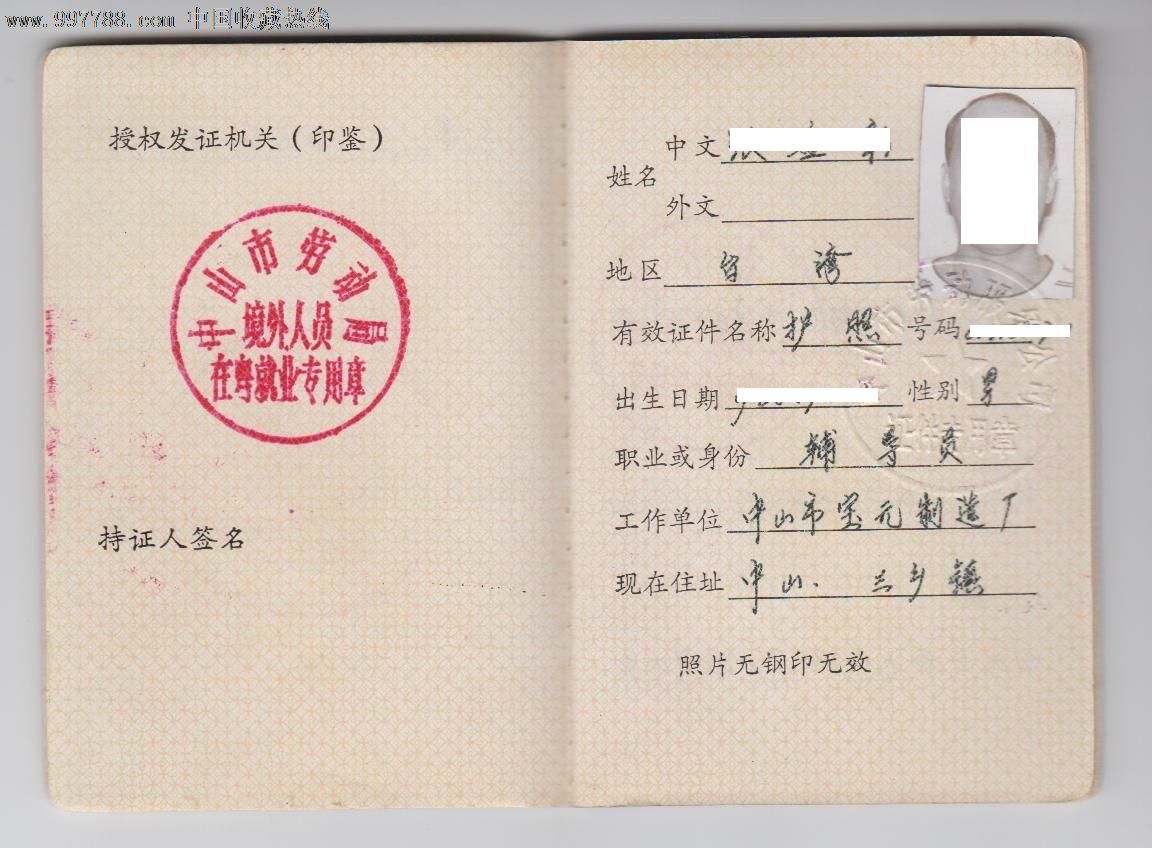 www.997788.com 中国收藏热线
授权发证机关(印鉴)
中山市劳动局
境外人员
在粤就业专用章
持证人签名
姓名
中文
外文
地区 台湾
有效证件名称 护照 号码
出生日期 性别 男
职业或身份 辅导员
工作单位 中山市宝元制造厂
现在住址 中山. 三乡镇
照片无钢印无效
证件专用章